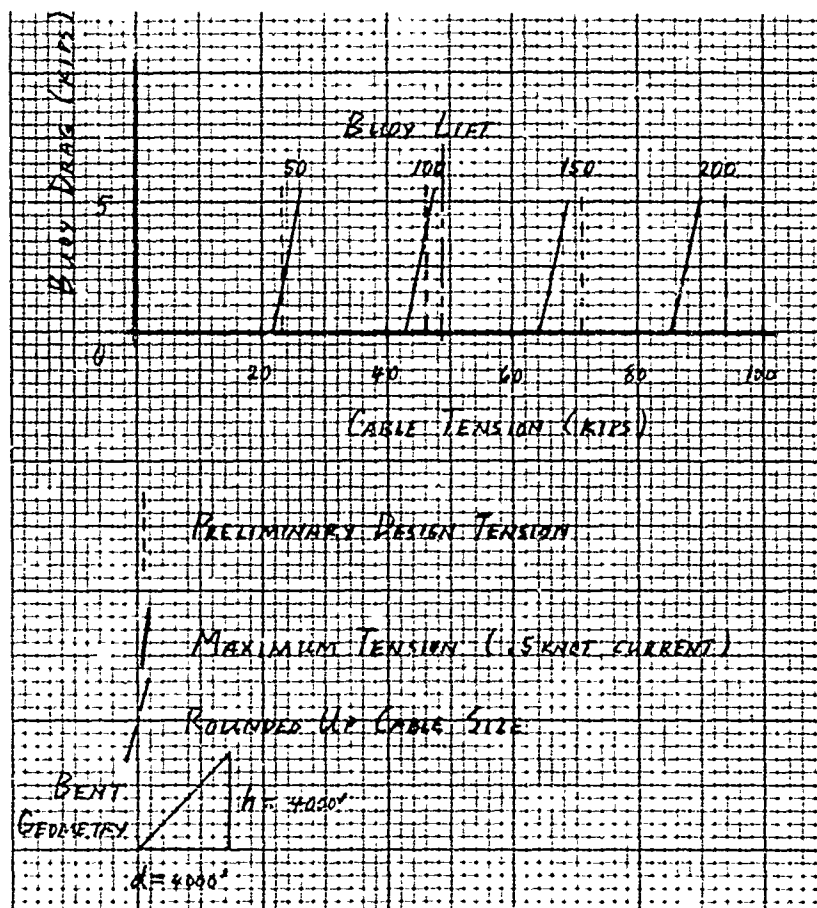 BUOY DRAG (KIPS)
BUOY LIFT
50 100 150 200
5
0
20 40 60 80 100
CABLE TENSION (KIPS)
PRELIMINARY DESIGN TENSION
MAXIMUM TENSION (.5 KNOT CURRENT)
ROUNDED UP CABLE SIZE
BENT
GEOMETRY
h = 4000'
d = 4000'